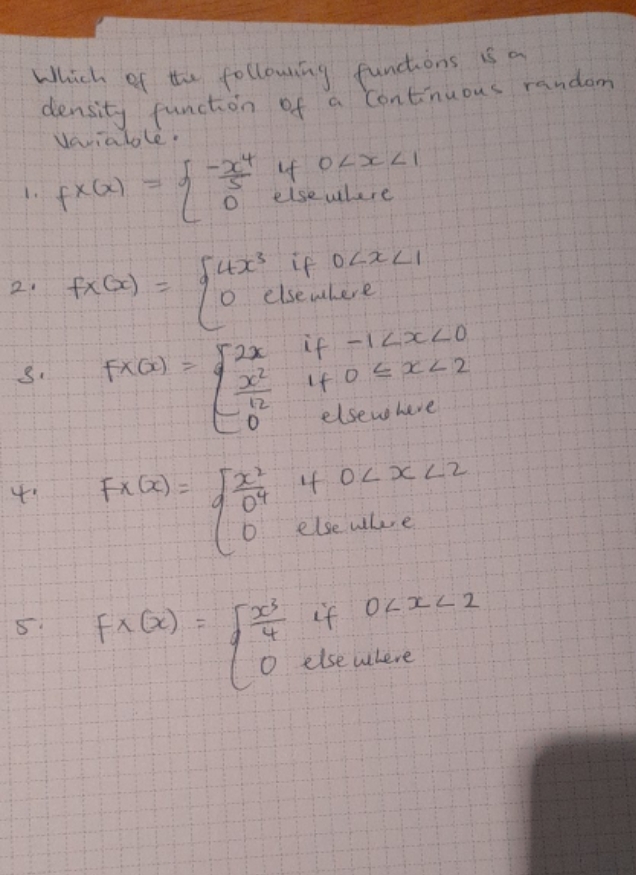 Which of the following functions is a
density function of a Continuous random
Variable.
1. fx(x) = { -x⁴/5 if 0<x<1
0 elsewhere
2. fx(x) = { 4x³ if 0<x<1
0 elsewhere
3. Fx(x) = { 2x if -1<x<0
x²/12 if 0≤x<2
0 elsewhere
4. Fx(x) = { x²/04 if 0<x<2
0 elsewhere
5. Fx(x) = { x³/4 if 0<x<2
0 elsewhere